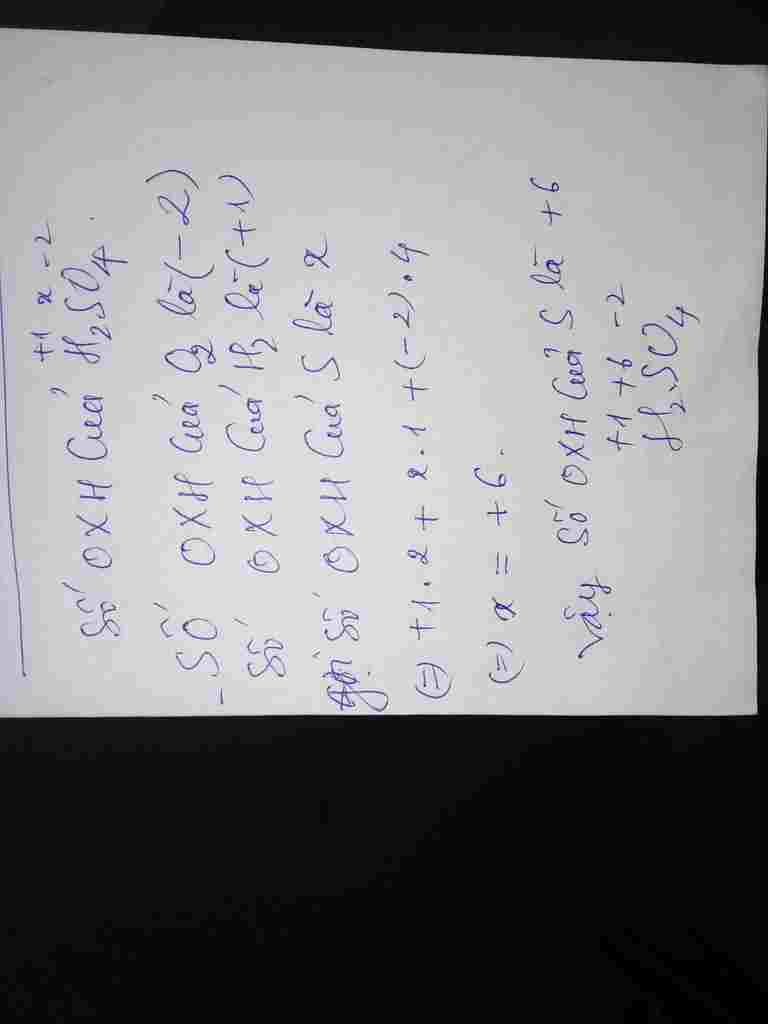 Số OXH Của H₂SO₄. +1 x -2
- SỐ OXH Của O₂ là (-2)
Số OXH Của H₂ là (+1)
gọi Số OXH Của S là x
(=) +1.2 + x.1 + (-2).4
(=) x = +6.
Vậy Số OXH Của S là +6
+1 +6 -2
H₂SO₄